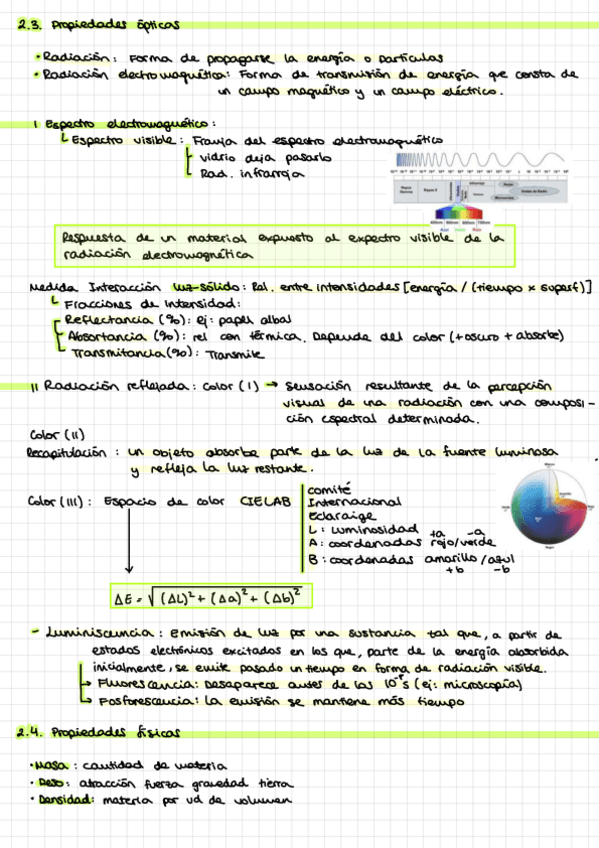 2.3. Propiedades ópticas
• Radiación: Forma de propagarse la energía o partículas
• Radiación electromagnética: Forma de transmisión de energía que consta de
un campo magnético y un campo eléctrico.
I Espectro electromagnético:
Espectro visible: Franja del espectro electromagnético
vidrio deja pasarlo
Rad. infrarroja
Respuesta de un material expuesto al expectro visible de la
radiación electromagnética
Medida Interacción luz-sólido: Rel. entre intensidades [energía / (tiempo x superf)]
Fracciones de intensidad:
Reflectancia (%): Ej: papel albal
Absortancia (%): rel con térmica. Depende del color (+oscuro + absorbe)
Transmitancia (%): Transmite
II Radiación reflejada: Color (I) → Sensación resultante de la percepción
visual de una radiación con una composi-
ción espectral determinada.
Color (II)
Recapitulación: un objeto absorbe parte de la luz de la fuente luminosa
y refleja la luz restante.
Color (III): Espacio de color CIELAB
comité
Internacional
Eclaraige
L: Luminosidad
+a -a
A: coordenadas rojo/verde
B: coordenadas amarillo/azul
+b -b
ΔE = √(ΔL)² + (Δa)² + (Δb)²
- Luminiscencia: Emisión de luz por una sustancia tal que, a partir de
estados electrónicos excitados en los que, parte de la energía absorbida
inicialmente, se emite pasado un tiempo en forma de radiación visible.
→ Fluorescencia: Desaparece antes de los 10⁻⁸s (ej: microscopía)
→ Fosforescencia: La emisión se mantiene más tiempo
2.4. Propiedades físicas
• Masa: cantidad de materia
• Peso: atracción fuerza gravedad tierra
• Densidad: materia por ud de volumen